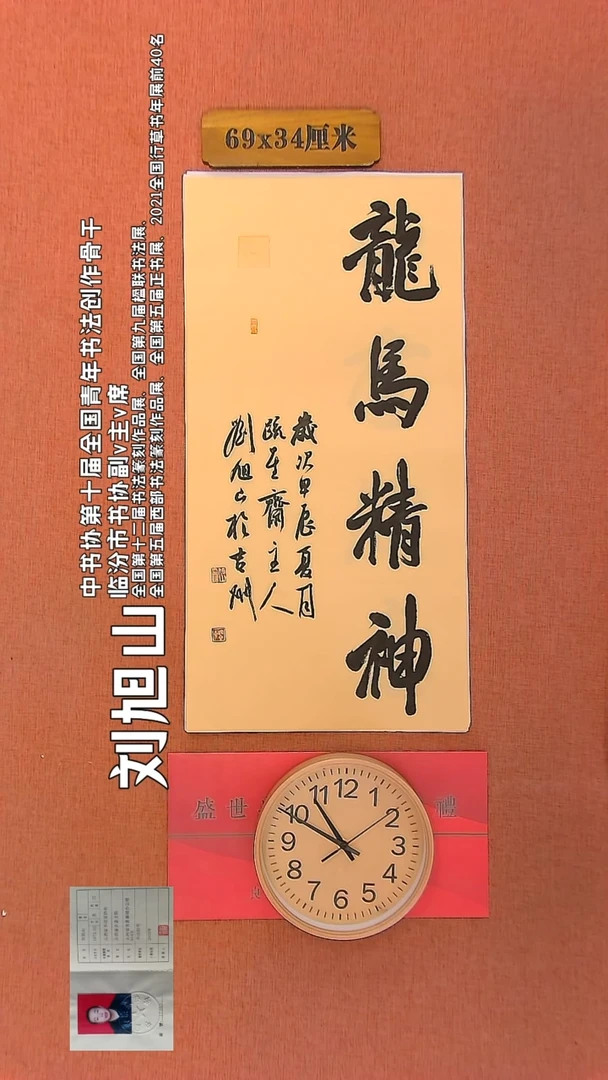 69x34厘米
龍馬精神
歲次甲辰夏月
主人
劉旭山於
中书协第十届全国青年书法创作骨干
临汾市书协副v主v席
全国第十二届书法篆刻作品展、全国第九届楹联书法展、
全国第五届西部书法篆刻作品展、全国第五届正书展、2021全国行草书年展前40名
刘旭山
盛世
禮
12
1
2
3
4
5
6
7
8
9
10
11